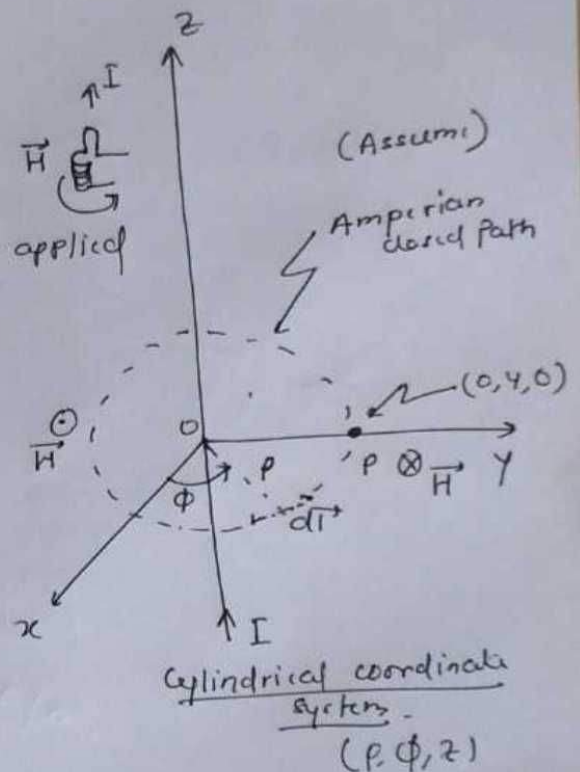 Z
I
H
applied
(Assume)
Amperian
closed Path
(0,Y,0)
H
O
ρ
P
H
Y
ϕ
dl
x
I
Cylindrical coordinate
system.
(ρ, ϕ, z)